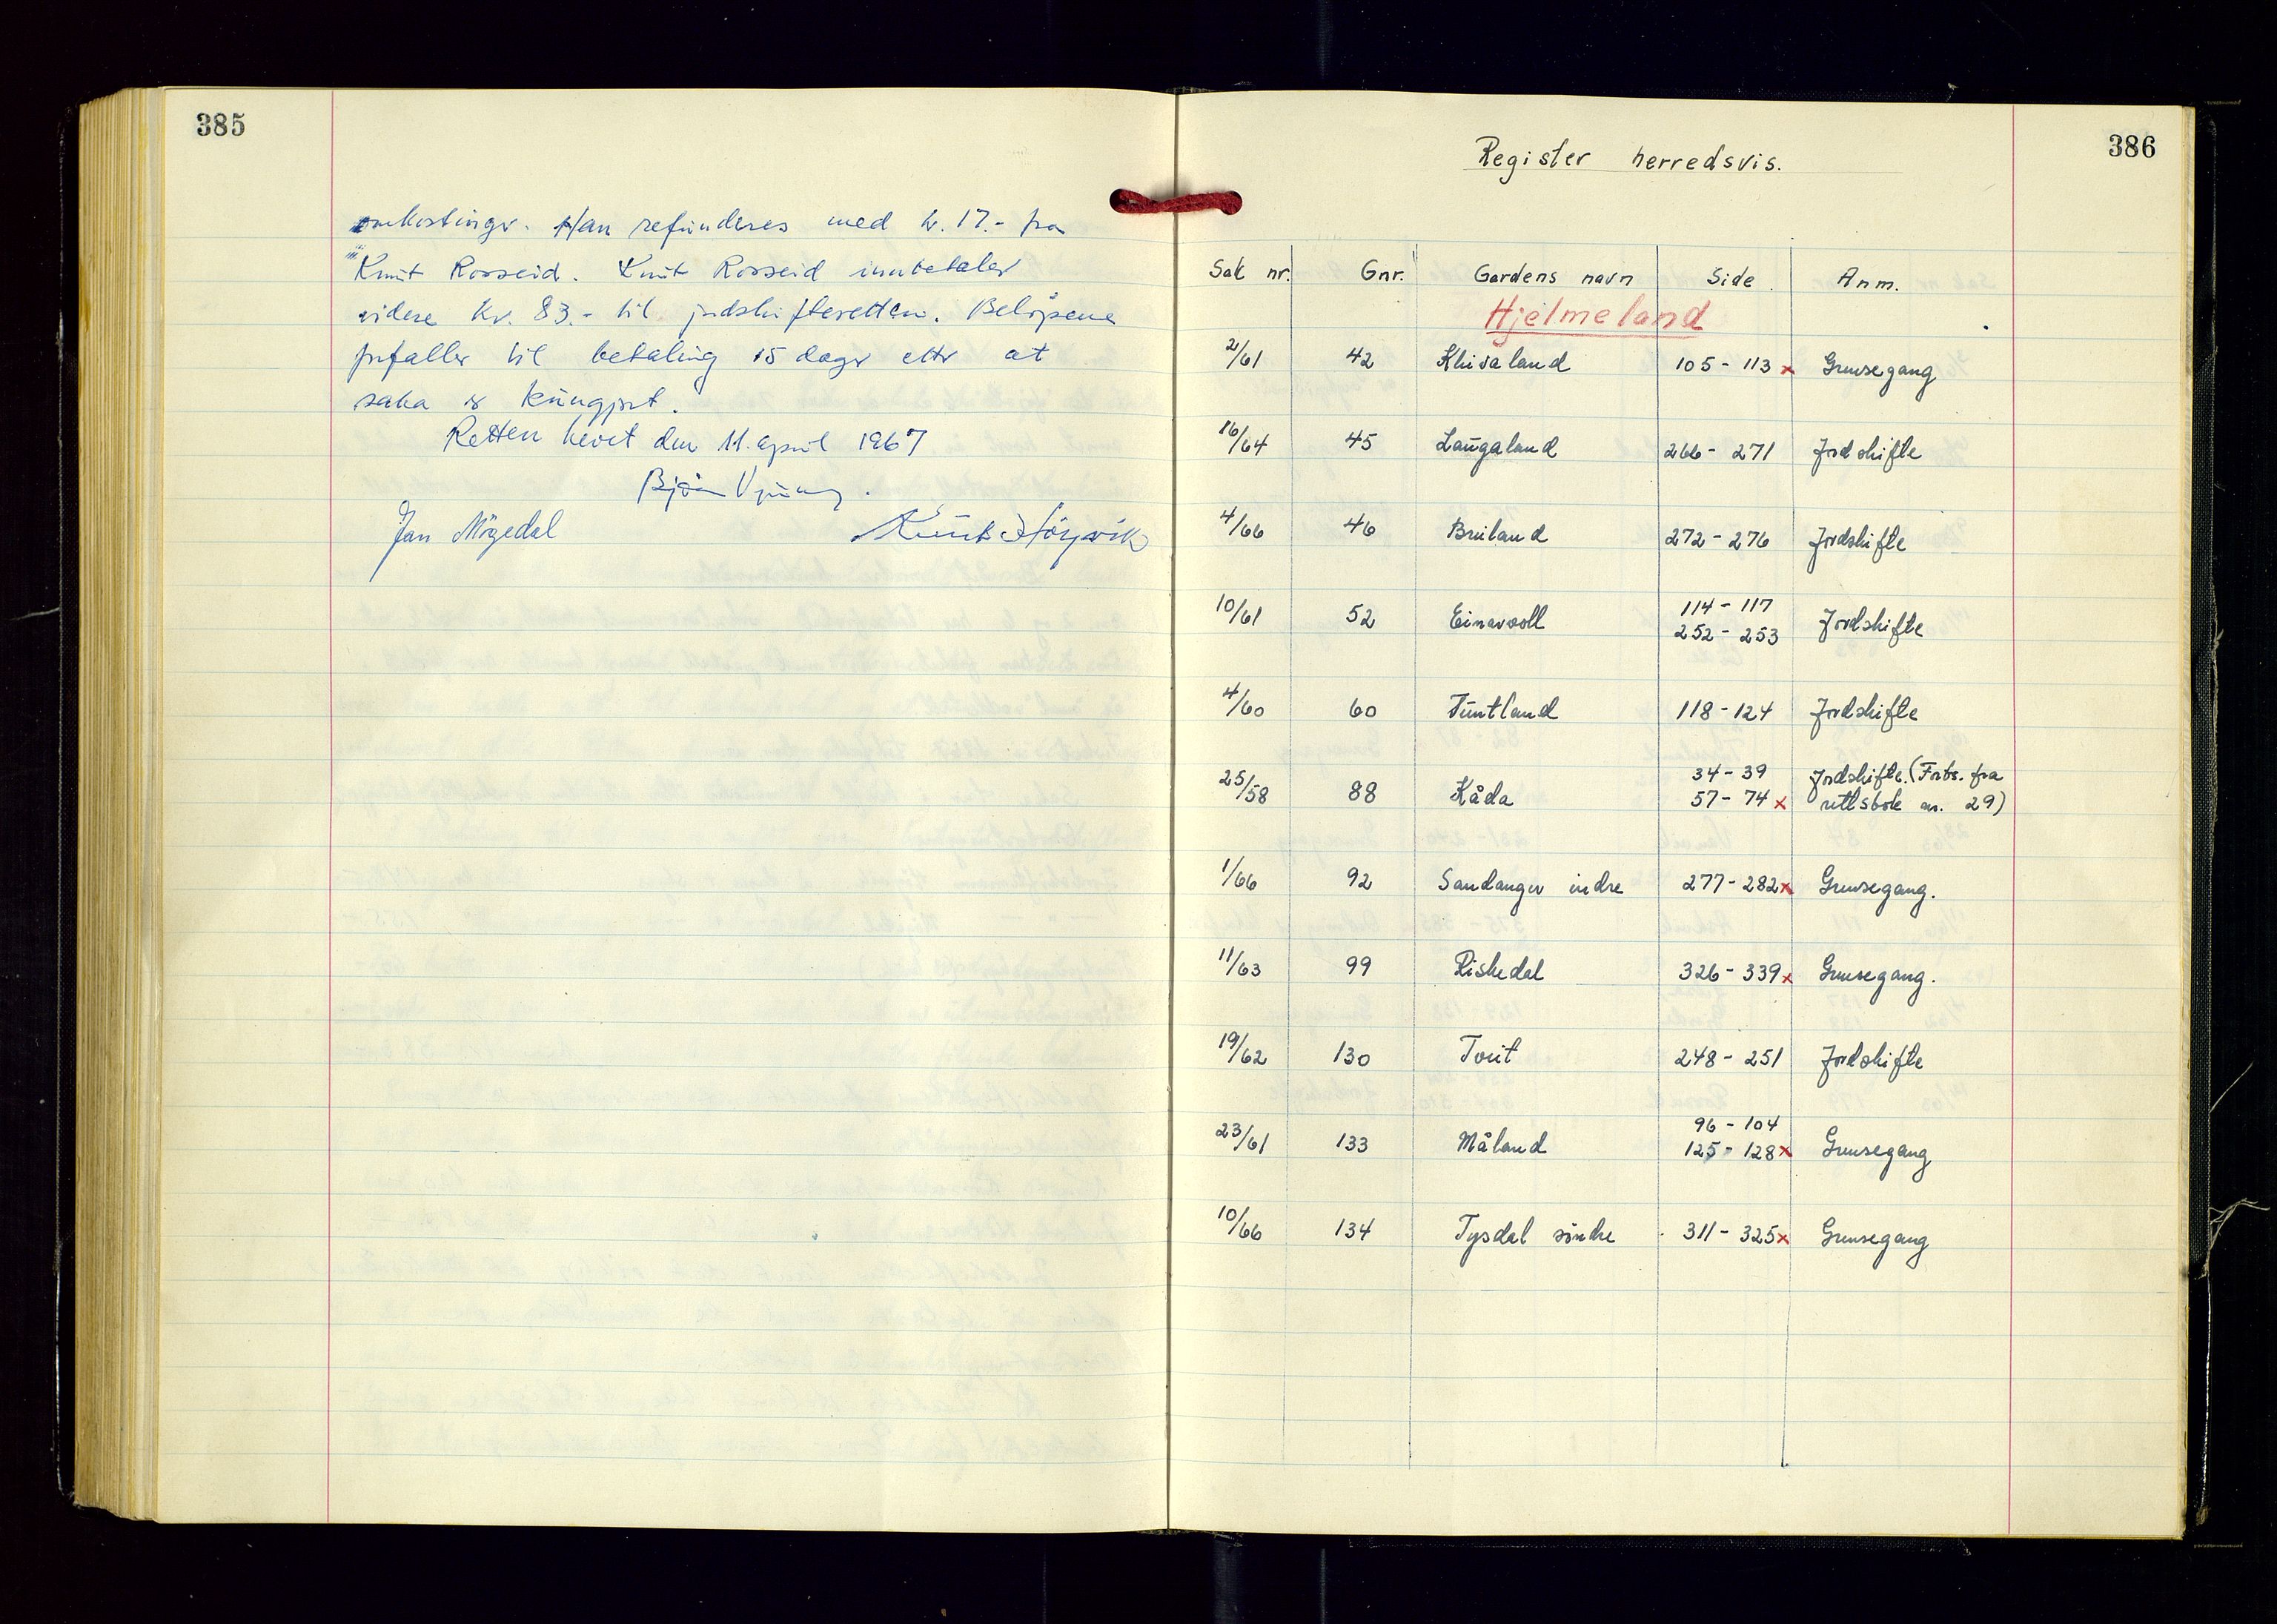 385
omkostinger. Han refunderes med kr. 17.- fra
Knut Rosseid. Knut Rosseid innbetaler
videre kr. 83.- til jordskifteretten. Beløpene
forfaller til betaling 15 dager etter at
saka er kungjort.
Retten hevet den 11. april 1967
Bjørn
Jan Mögedal Knut
386
Register herredsvis.
Sak nr. Gnr. Gardens navn Side Anm.
Hjelmeland
2/61 42 Kleivaland 105 - 113 x Grensegang
16/64 45 Laugaland 266 - 271 Jordskifte
4/66 46 Bruland 272 - 276 Jordskifte
10/61 52 Einavoll 114 - 117
252 - 253 Jordskifte
4/60 60 Tuntland 118 - 124 Jordskifte
25/58 88 Kåda 34 - 39 Jordskifte. (Forts. fra
57 - 74 x rettsbok nr. 29)
1/66 92 Sandanger indre 277 - 282 x Grensegang.
11/63 99 Riskedal 326 - 339 x Grensegang.
19/62 130 Tveit 248 - 251 Jordskifte
23/61 133 Måland 96 - 104
125 - 128 x Grensegang
10/66 134 Tysdal søndre 311 - 325 x Grensegang